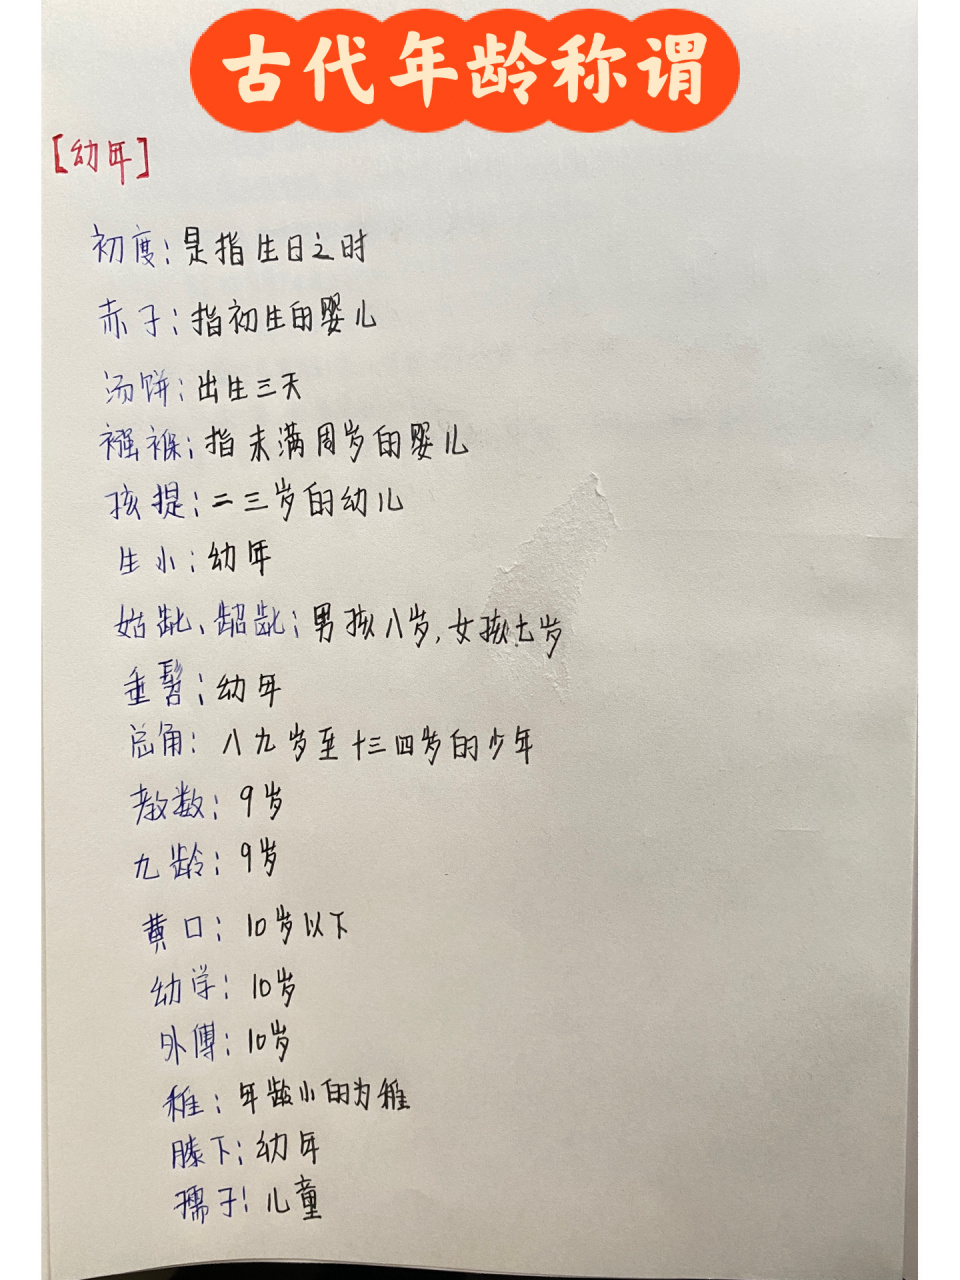 古代年龄称谓
[幼年]
初度:是指生日之时
赤子:指初生的婴儿
汤饼:出生三天
襁褓:指未满周岁的婴儿
孩提:二三岁的幼儿
生小:幼年
始龀、龆龀:男孩八岁,女孩七岁
垂髫:幼年
总角:八九岁至十三四岁的少年
教数:9岁
九龄:9岁
黄口:10岁以下
幼学:10岁
外傅:10岁
稚:年龄小的为稚
膝下:幼年
孺子:儿童